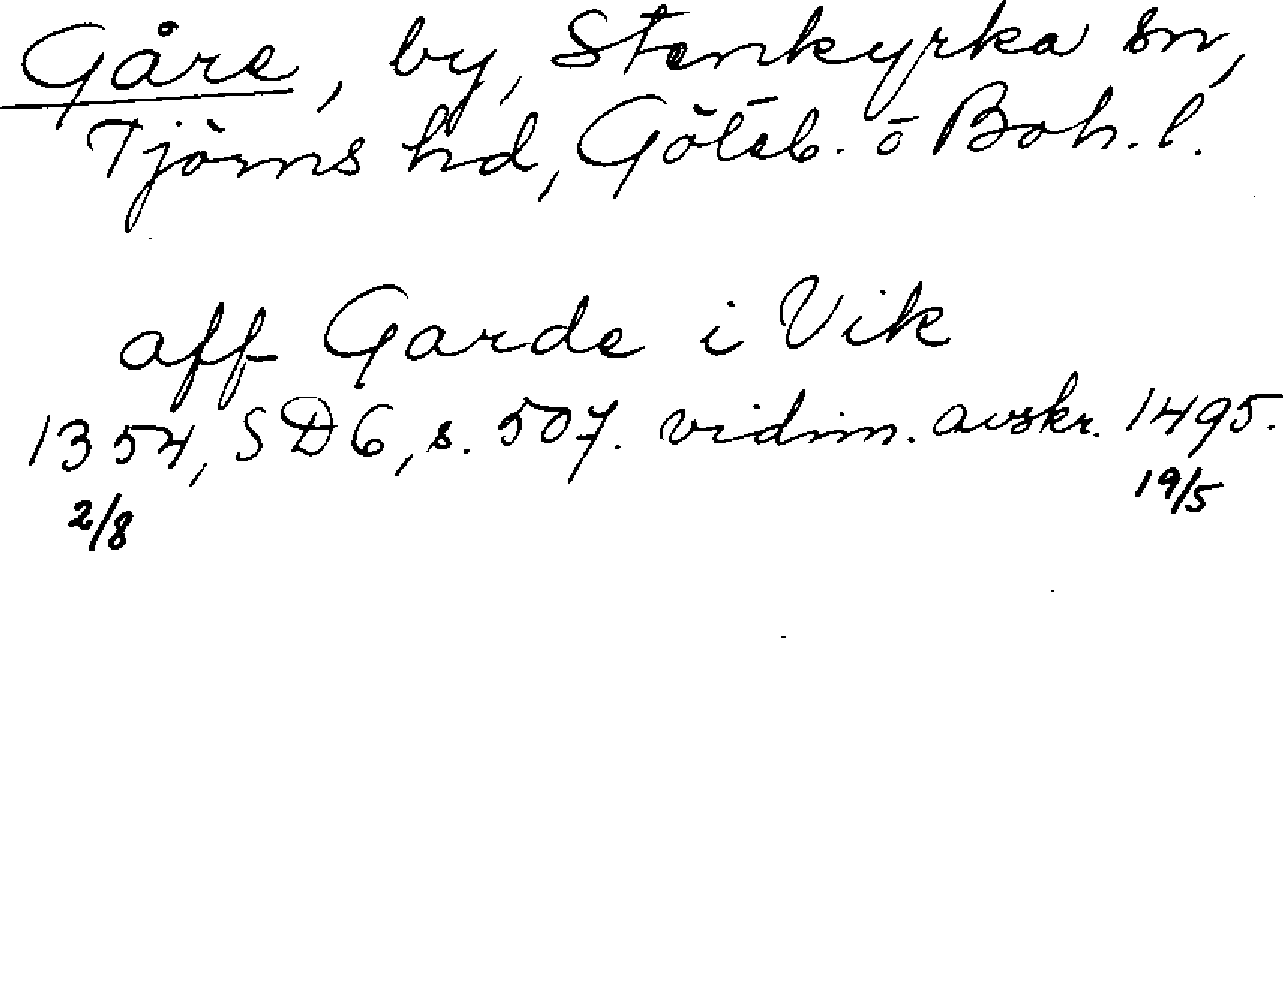 Gåre, by, Stenkyrka sn,
Tjörns hd, Götsb. o Boh. l.
aff Garde i Vik
1354, SD 6, s. 507. vidim. avskr. 1495.
2/8 19/5